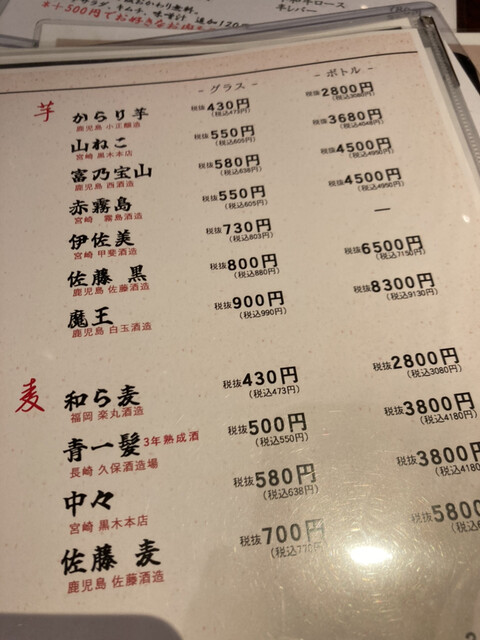 おかわり無料。
サラダ、キムチ、味噌汁 追加120
*+500円でお好きなお
牛レバー
- グラス -
- ボトル -
芋
からり芋 税抜430円 税抜2800円
鹿児島 小正醸造 (税込473円) (税込3080円)
山ねこ 税抜550円 税抜3680円
宮崎 黒木本店 (税込605円) (税込4048円)
富乃宝山 税抜580円 税抜4500円
鹿児島 西酒造 (税込638円) (税込4950円)
赤霧島 税抜550円 税抜4500円
宮崎 霧島酒造 (税込605円) (税込4950円)
伊佐美 税抜730円 ―
宮崎 甲斐酒造 (税込803円)
佐藤 黒 税抜800円 税抜6500円
鹿児島 佐藤酒造 (税込880円) (税込7150円)
魔王 税抜900円 税抜8300円
鹿児島 白玉酒造 (税込990円) (税込9130円)
麦
和ら麦 税抜430円 税抜2800円
福岡 楽丸酒造 (税込473円) (税込3080円)
青一髪 3年熟成酒 税抜500円 税抜3800円
長崎 久保酒造場 (税込550円) (税込4180円)
中々 税抜580円 税抜3800円
宮崎 黒木本店 (税込638円) (税込4180
佐藤 麦 税抜700円 税抜5800
鹿児島 佐藤酒造 (税込770円) (税込6